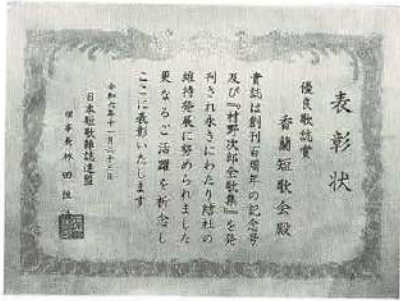 表彰状
優良歌誌賞
香蘭短歌会殿
貴誌は創刊百周年の記念号
及び『村野次郎全歌集』を発
刊され永きにわたり結社の
維持発展に努められました
更なるご活躍を祈念し
ここに表彰いたします
令和六年十一月二十三日
日本短歌雑誌連盟
理事長 林田恒